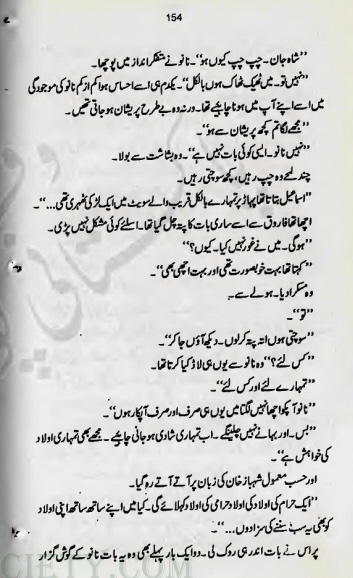 154
"شاہ جان۔ چپ چپ کیوں ہو"۔ نانو نے متفکر انداز میں پوچھا۔
"نہیں تو۔ میں ٹھیک ٹھاک ہوں بالکل"۔ یکدم ہی اسے احساس ہوا کم از کم نانو کی موجودگی
میں اسے اپنے آپ میں ہونا چاہیے تھا۔ ورنہ وہ بے طرح پریشان ہو جاتی تھیں۔
"مجھے لگا تم کچھ پریشان سے ہو"۔
"نہیں نانو۔ ایسی کوئی بات نہیں ہے"۔ وہ بشاشت سے بولا۔
چند لمحے وہ چپ رہیں، کچھ سوچتی رہیں۔
"اسماعیل بتاتا تھا پہاڑ پر تمہارے بالکل قریب والے سویٹ میں ایک لڑکی ٹھہری تھی۔۔۔"۔
اچھا تھا فاروق سے اسے ساری بات کا پتہ چل گیا تھا۔ اسلئے کوئی مشکل نہیں پڑی۔
"ہوگی۔ میں نے غور نہیں کیا۔ کیوں؟"
"کہتا تھا بہت خوبصورت تھی اور بہت اچھی بھی"۔
وہ مسکرا دیا۔ ہولے سے۔
"تو"۔
"سوچتی ہوں اتہ پتہ کرلوں۔ دیکھ آؤں جا کر"۔
"کس لئے؟" وہ نانو سے یوں ہی لاڈ کیا کرتا تھا۔
"تمہارے لئے اور کس لئے"۔
"نانو آپکو اچھا نہیں لگتا میں یوں ہی صرف اور صرف آپکا رہوں"۔
"بس۔ اور بہانے نہیں چلینگے۔ اب تمہاری شادی ہو جانی چاہیے۔ مجھے بھی تمہاری اولاد
کی خواہش ہے"۔
اور حسب معمول شہباز خان کی زبان پر آتے آتے رہ گیا۔
"ایک حرام کی اولاد کی اولاد حرامی کی اولاد کہلائے گی۔ کیا میں اپنے ساتھ ساتھ اپنی اولاد
کو بھی یہ سب سننے کی سزا دوں۔۔۔"۔
پر اس نے بات اندر ہی روک لی۔ دو ایک بار پہلے بھی وہ یہ بات نانو کے گوش گزار
CIETY.COM